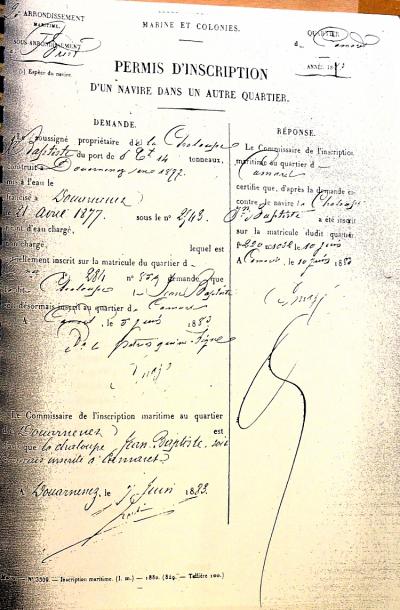 ARRONDISSEMENT
MARITIME.
SOUS-ARRONDISSEMENT
Brest
(1) Espèce du navire.
MARINE ET COLONIES.
QUARTIER
d Camaret
ANNÉE 1883
PERMIS D'INSCRIPTION
D'UN NAVIRE DANS UN AUTRE QUARTIER.
DEMANDE.
soussigné propriétaire de la Chaloupe
Baptiste du port de 8 Tx 14 tonneaux,
construit à Douarnenez en 1877.
mis à l'eau le
francisé à Douarnenez
le 21 Avril 1877 sous le n° 2543.
d'eau chargé,
non chargé, lequel est
actuellement inscrit sur la matricule du quartier d
f° 284 n° demande que
ledit Chaloupe le Jean Baptiste
soit désormais inscrit au quartier d Camaret
A Camaret, le 8 juin 1883
Le Commissaire de l'inscription maritime au quartier
de Douarnenez est
que la chaloupe Jean-Baptiste soit
désormais inscrite à Camaret.
A Douarnenez, le 9 Juin 1883.
RÉPONSE.
Le Commissaire de l'inscription
maritime du quartier d
Camaret
certifie que, d'après la demande ci-
contre, le navire la Chaloupe
Jn Baptiste a été inscrit
sur la matricule dudit quartier
le 10 juin
A Camaret, le 10 juin 1883
N° 3509. — Inscription maritime. (I. m.) — 1880. (829. — Tellière 100.)